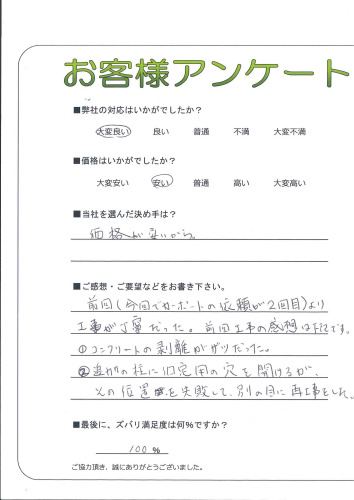 お客様アンケート
■弊社の対応はいかがでしたか？
大変良い 良い 普通 不満 大変不満
■価格はいかがでしたか？
大変安い 安い 普通 高い 大変高い
■当社を選んだ決め手は？
価格が安いから。
■ご感想・ご要望などをお書き下さい。
前回(今回でカーポートの依頼が2回目)より
工事が丁寧だった。前回工事の感想は下記です。
①コンクリートの剥離がザツだった。
②追加の柱に固定用の穴を開けるが、
その位置を失敗して、別の日に再工事をした。
■最後に、ズバリ満足度は何%ですか？
100 %
ご協力頂き、誠にありがとうございました。